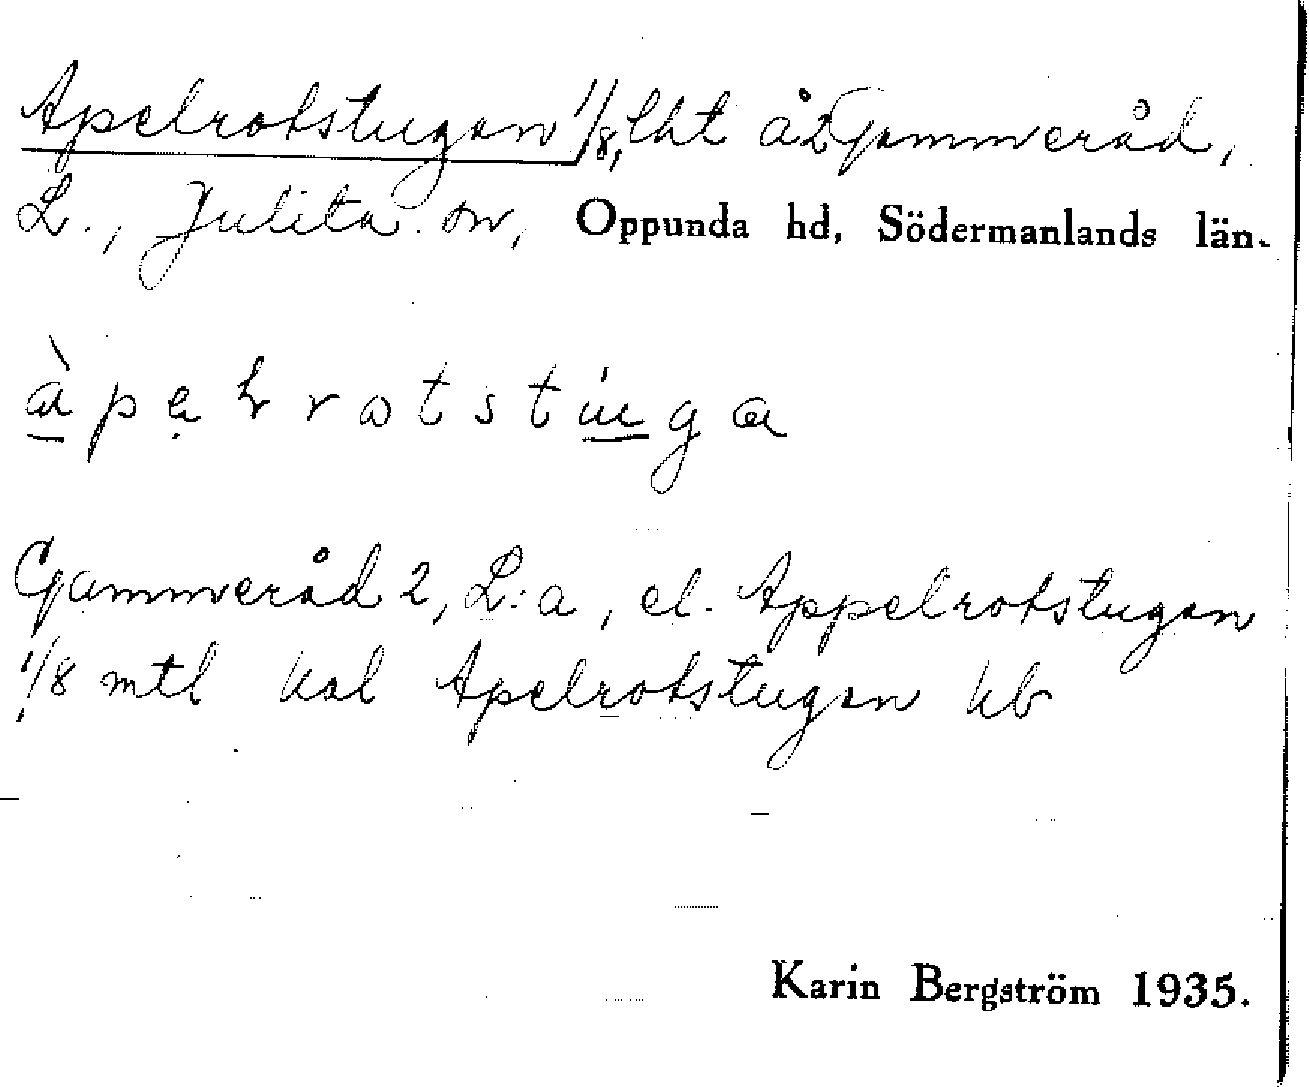 Apelrotstugan 1/8, lht å 2 Gammeråd,
L., Julita sn, Oppunda hd, Södermanlands län.
àpelrotstúga
Gammeråd 2, L:a, el. Appelrotstugan
1/8 mtl kal Apelrotstugan kb
Karin Bergström 1935.